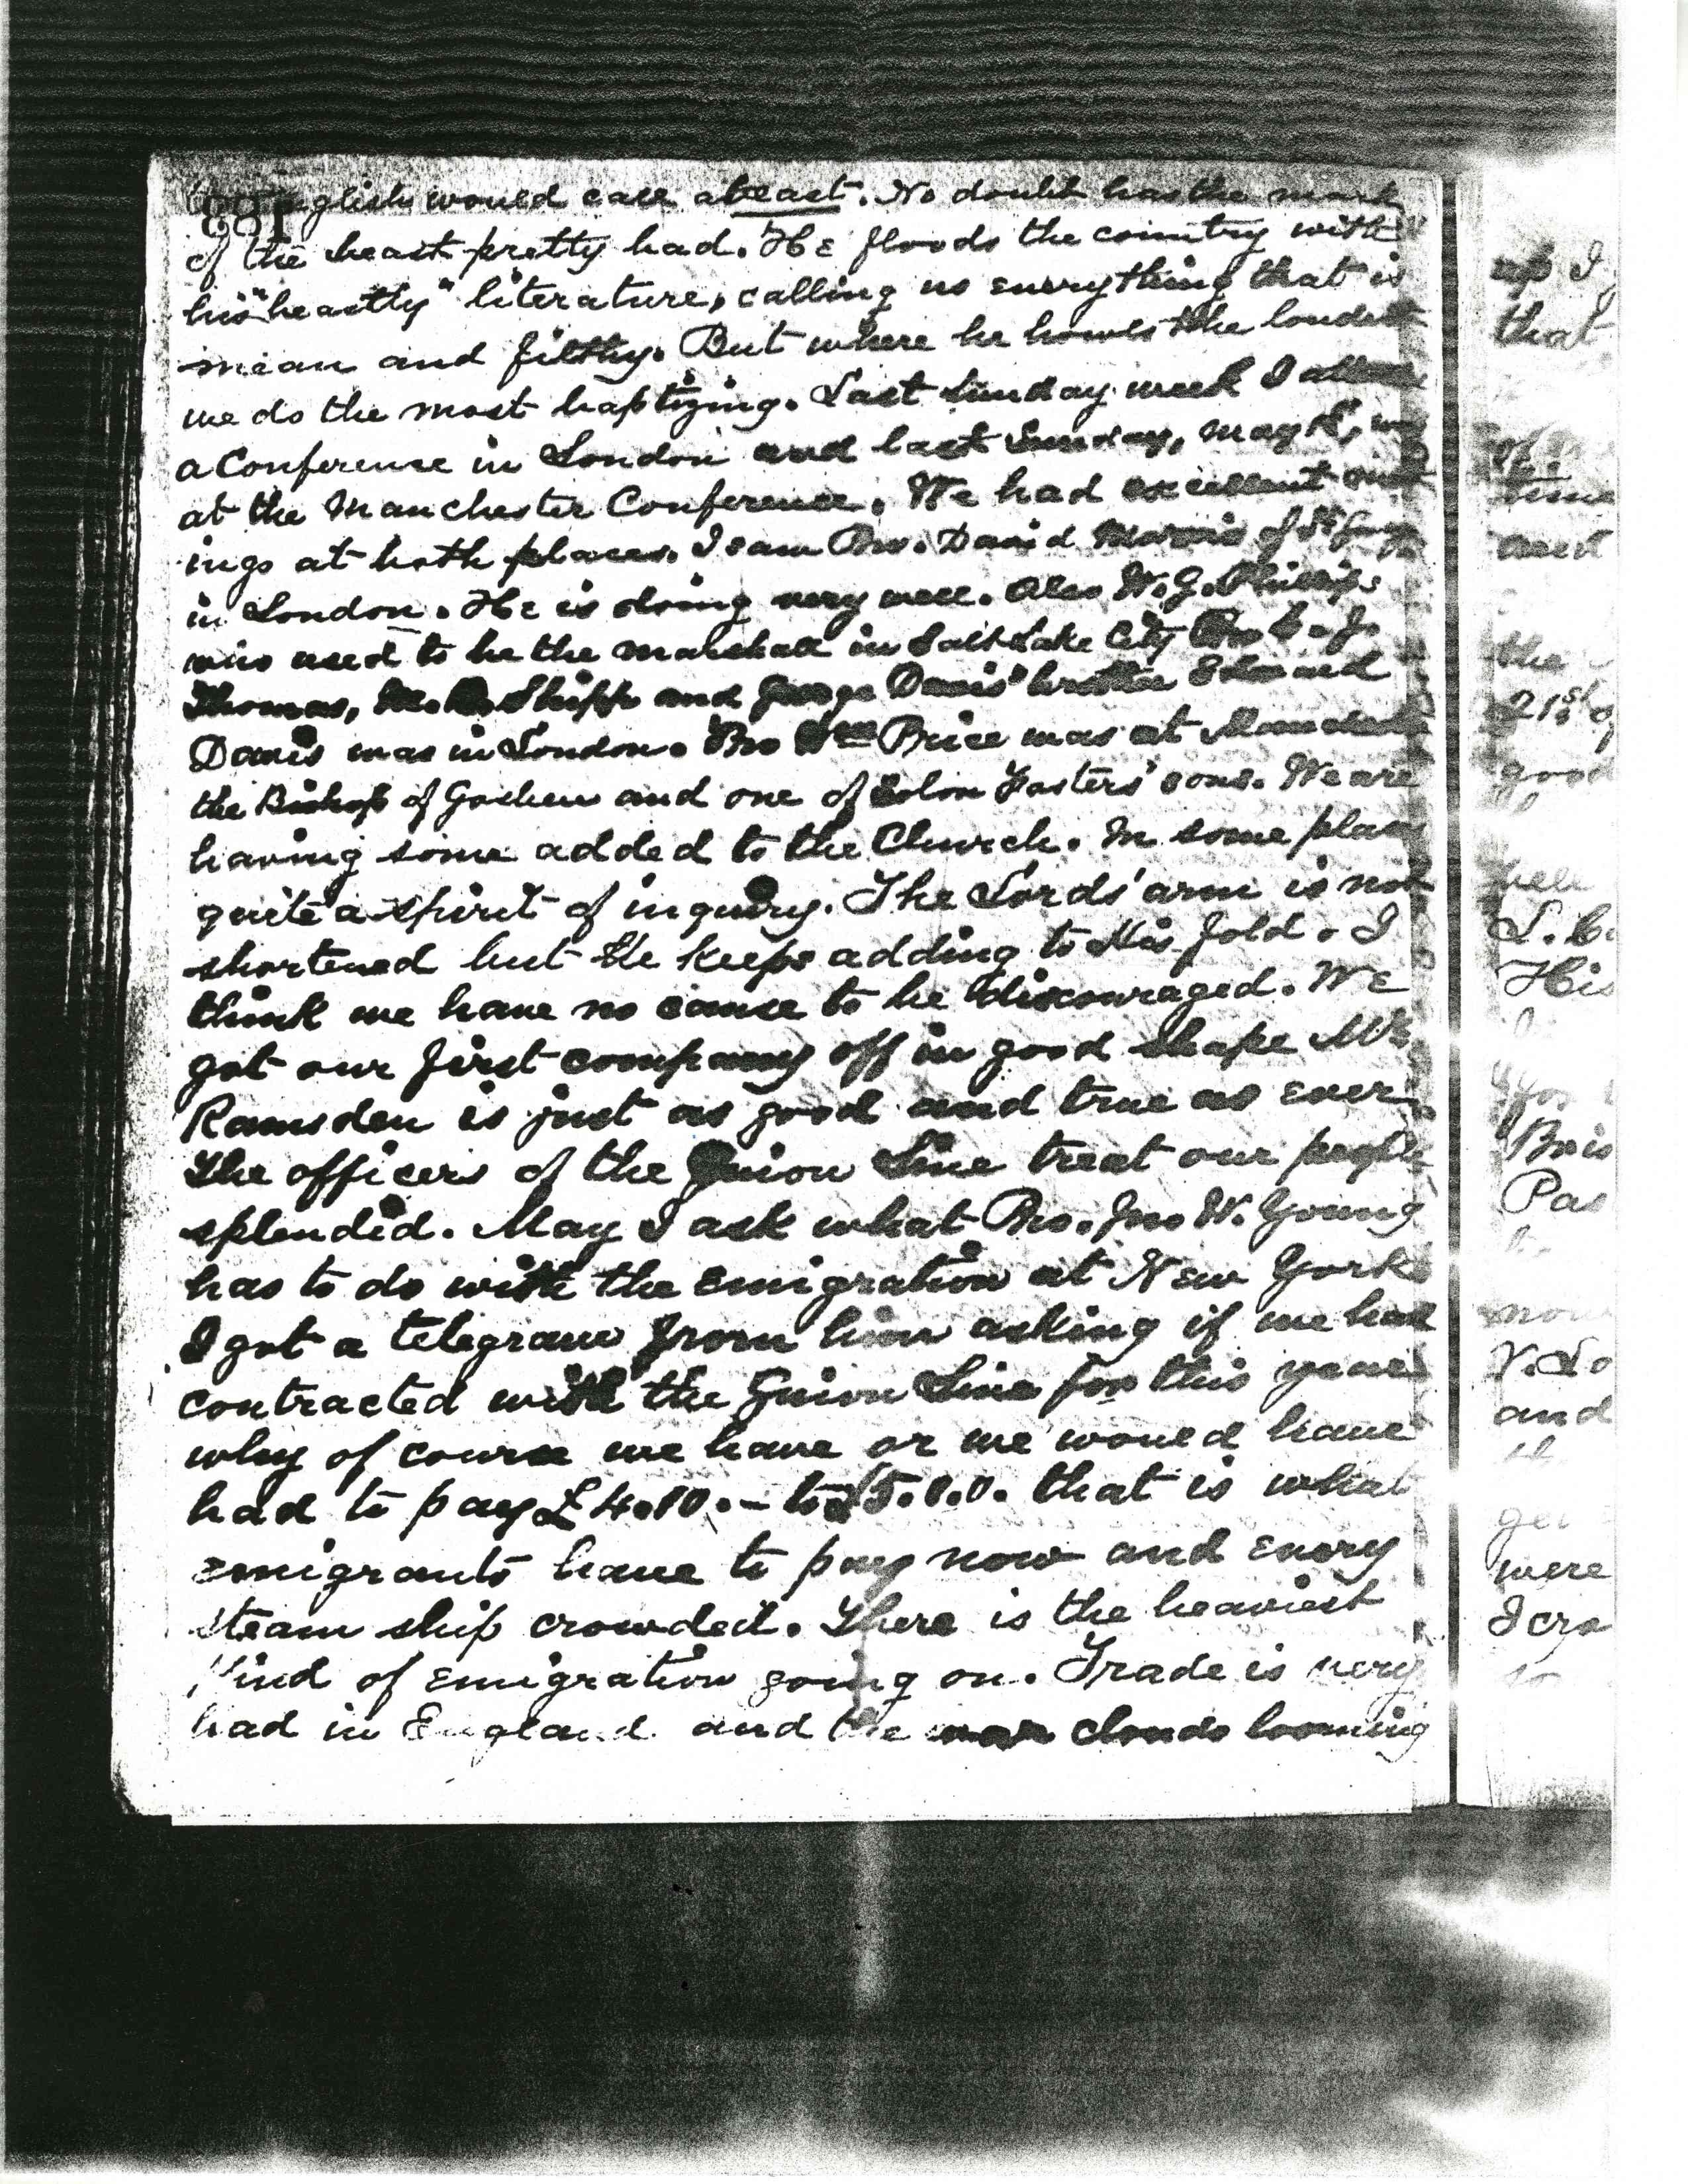 English would call a beast. No doubt has the mark
of the beast pretty bad. He floods the country with
his "beastly" literature, calling us everything that is
mean and filthy. But where he howls the loudest
we do the most baptizing. Last Sunday week I
a Conference in London and last Sunday, May
at the Manchester Conference. We had excellent meet
ings at both places. I saw Bro. David Morris of St
in London. He is doing very well. Also W. G. Phillips
who used to be the marshall in Salt Lake City Bro
Thomas, Shipp and George Davis' brother Edward
Davis was in London. Bro Wm Price was at Manchester
the Bishop of Goshen and one of Solon Fosters' sons. We are
having some added to the Church. In some places
quite a spirit of inquiry. The Lords' arm is not
shortened but He keeps adding to His fold. I
think we have no cause to be discouraged. We
got our first company off in good shape Mr.
Ramsden is just as good and true as ever
the officers of the Guion Line treat our people
splendid. May I ask what Bro. Jno W. Young
has to do with the emigration at New York
I got a telegram from him asking if we had
contracted with the Guion Line for this year
why of course we have or we would have
had to pay £4.10.- to £5.0.0. that is what
emigrants have to pay now and every
steam ship crowded. There is the heaviest
kind of emigration going on. Trade is very
bad in England and the war clouds looming
up I
that
time
the
21st
good
L.
His
for
Pas
and
were